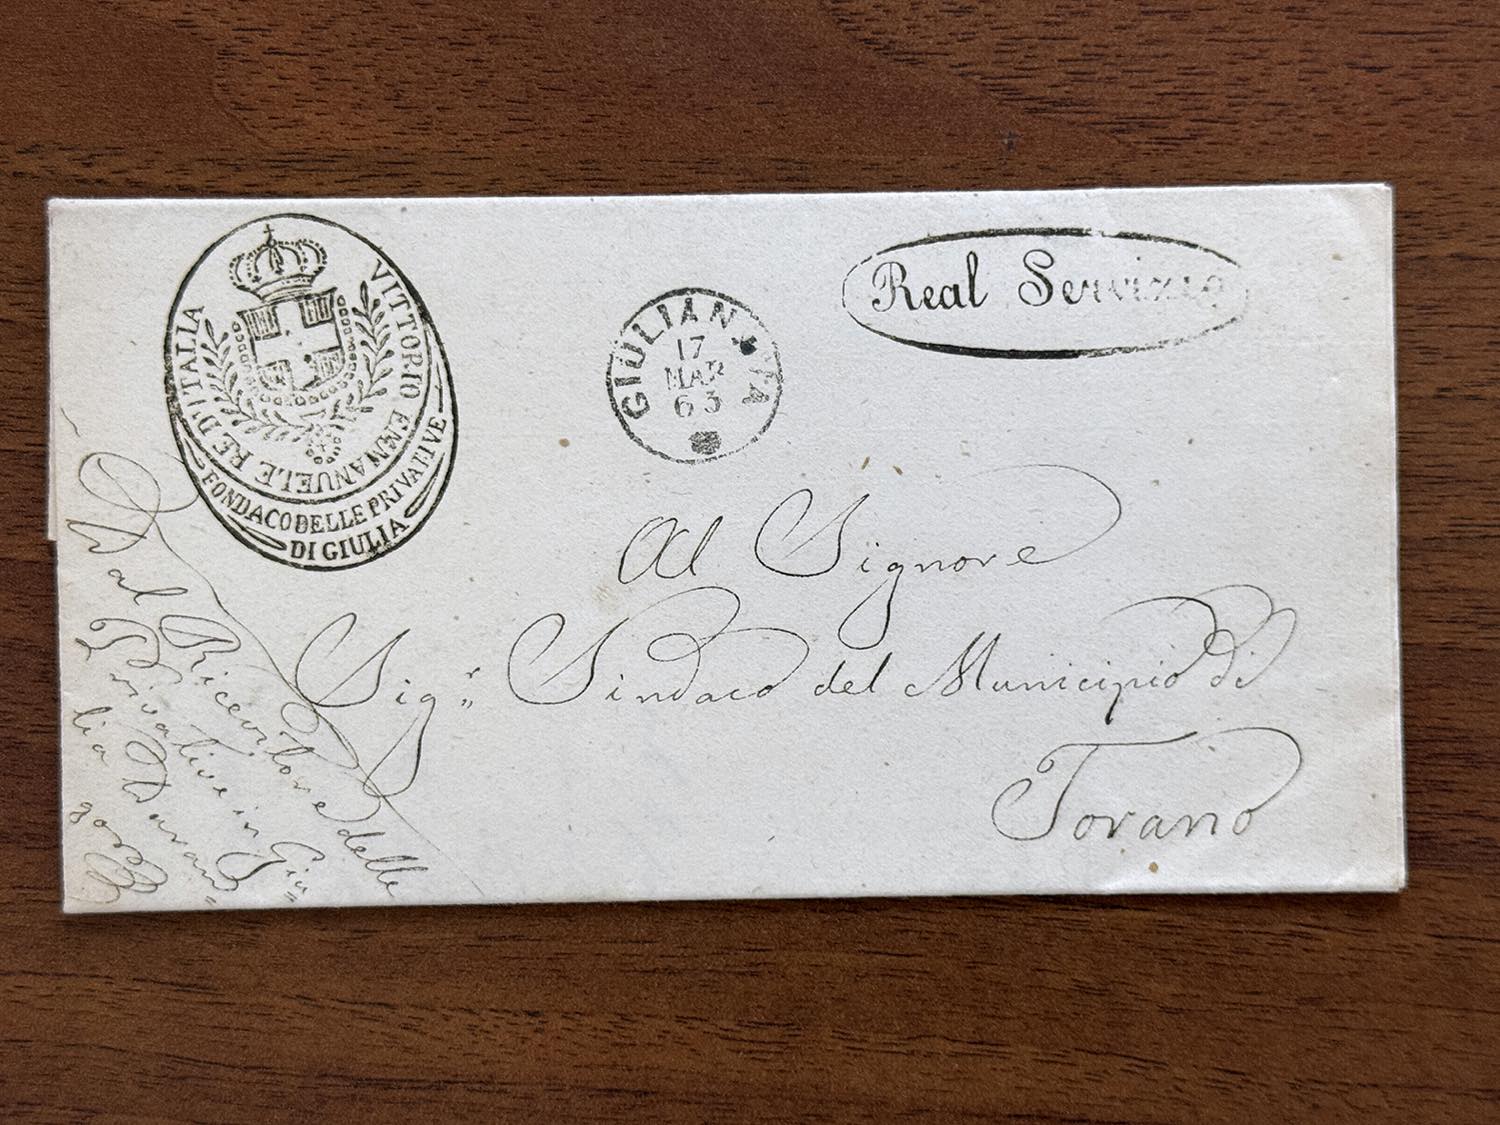 VITTORIO EMMANUELE RE D'ITALIA
FONDACO DELLE PRIVATIVE
DI GIULIA
GIULIANOVA
17
MAR
63
Real Servizio
Al Signore
Sig.r Sindaco del Municipio di
Torano
Dal Ricevitore delle
Privative in Giu"
lia